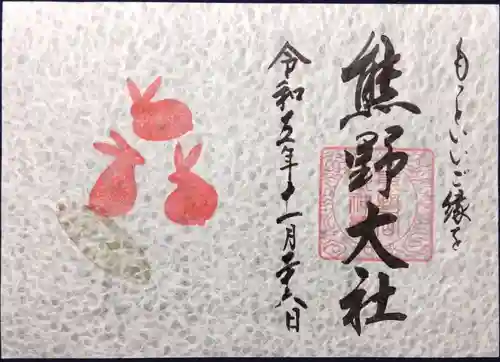 もっといいご縁を
熊野大社
令和五年十一月二十六日